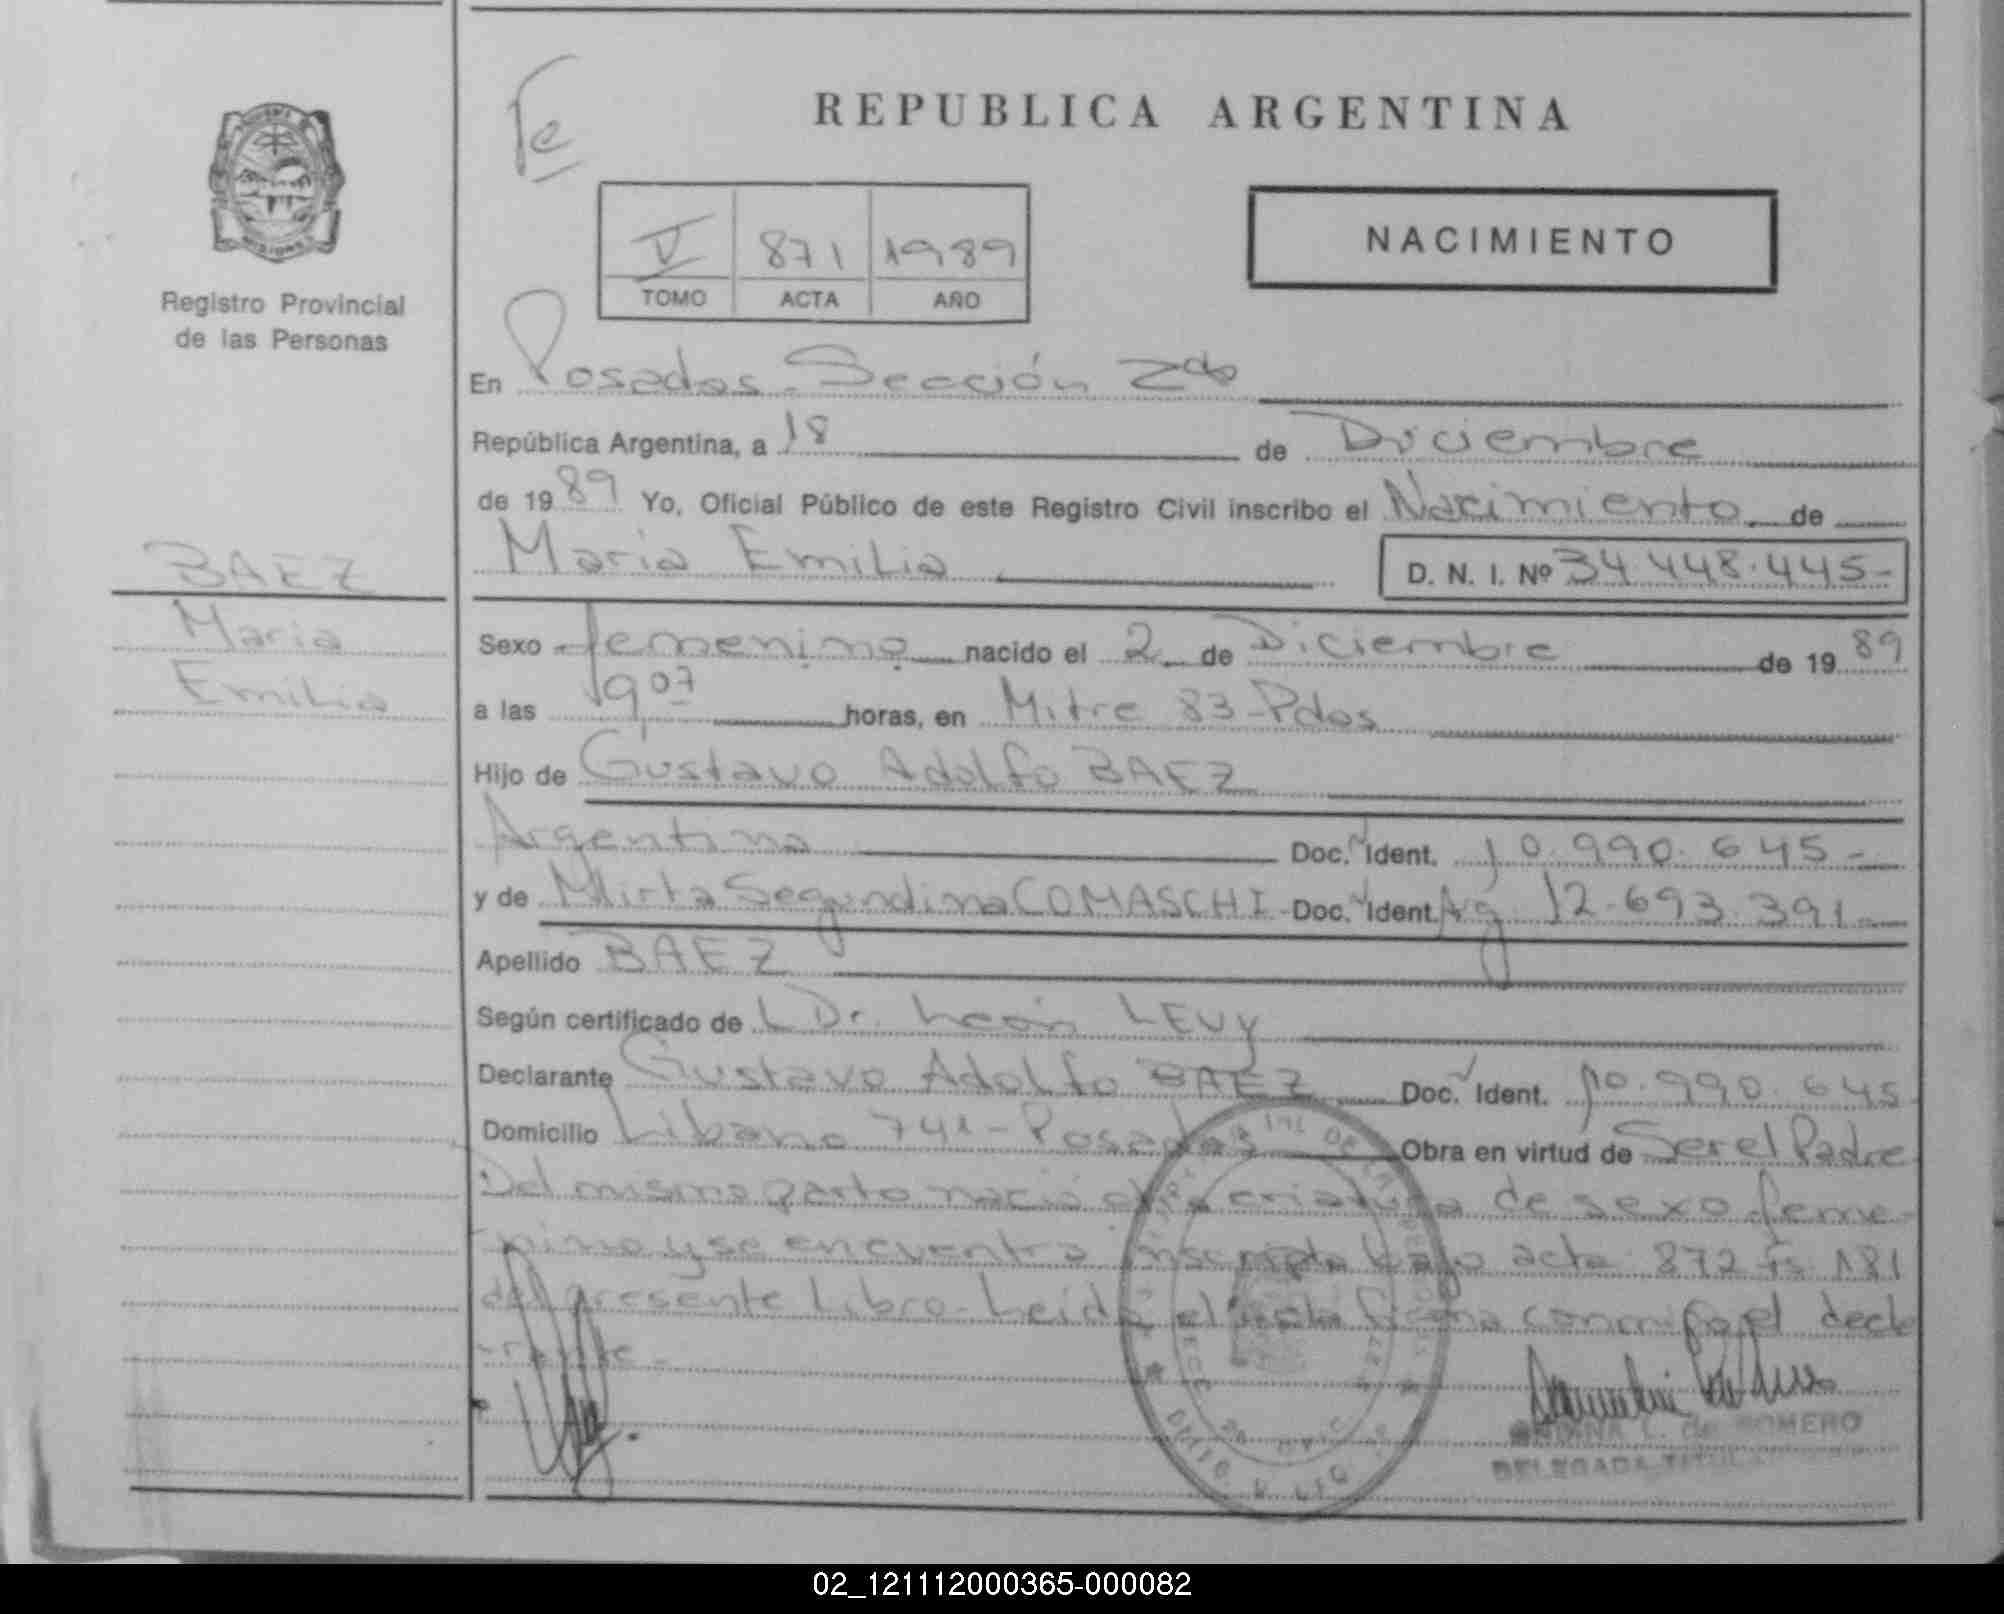 Te
REPUBLICA ARGENTINA
V 871 1989
TOMO ACTA AÑO
NACIMIENTO
MISIONES
Registro Provincial
de las Personas
En Posadas - Sección 2da
República Argentina, a 18 de Diciembre
de 1989 Yo, Oficial Público de este Registro Civil inscribo el Nacimiento de
Maria Emilia D. N. I. Nº 34.448.445-
BAEZ
Maria
Emilia
Sexo femenino nacido el 2 de Diciembre de 1989
a las 19 07 horas, en Mitre 83-Pdas
Hijo de Gustavo Adolfo BAEZ
Argentina Doc. Ident. 10.990.645-
y de Mirta Segundina COMASCHI - Doc. Ident. Ag. 12.693.391-
Apellido BAEZ
Según certificado de Dr. León LEVY
Declarante Gustavo Adolfo BAEZ Doc. Ident. 10.990.645
Domicilio Libano 741-Posadas Obra en virtud de Ser el Padre
Del mismo parto nació otra criatura de sexo feme-
nino y se encuentra inscripta bajo acta 872 Fs 181
del presente Libro- Leida el acta firma conmigo el decla
-rante-
L. de ROMERO
DELEGADA TITULAR
02_121112000365-000082